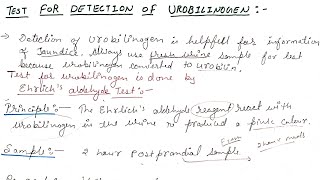 TEST FOR DETECTION OF UROBILINOGEN :-
→ Detection of urobilinogen is helpfull for information
of Jaundice. Always use fresh urine sample for test
because urobilinogen converted to urobilin.
Test for urobilinogen is done by
Ehrlich's aldehyde Test :-
Principle :- The Ehrlich's aldehyde reagent react with
urobilinogen in the urine to produced a pink colour.
Sample :- 2 hour Post prandial sample
2 hour meals